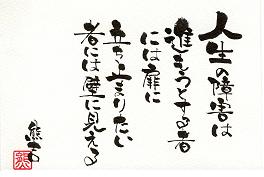 人生の障害は
進もうとする者
には扉に
立ち止まりたい
者には壁に見える
熊吉
熊